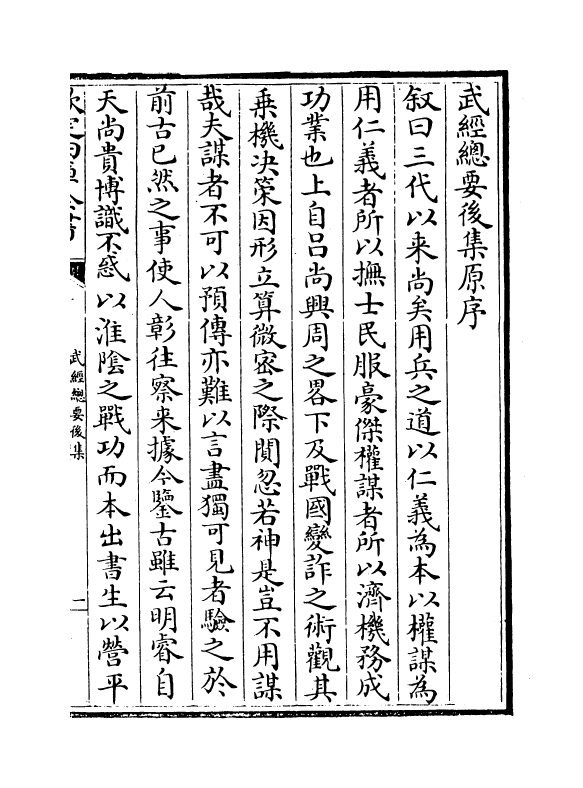 武經總要後集原序
叙曰三代以来尚矣用兵之道以仁義為本以權謀為
用仁義者所以撫士民服豪傑權謀者所以濟機務成
功業也上自吕尚興周之畧下及戰國變詐之術觀其
乗機决策因形立算微宻之際閒忽若神是豈不用謀
哉夫謀者不可以預傳亦難以言盡獨可見者驗之於
前古已然之事使人彰往察来據今鑒古雖云明睿自
天尚貴博識不惑以淮陰之戰功而本出書生以營平
武經總要後集
二